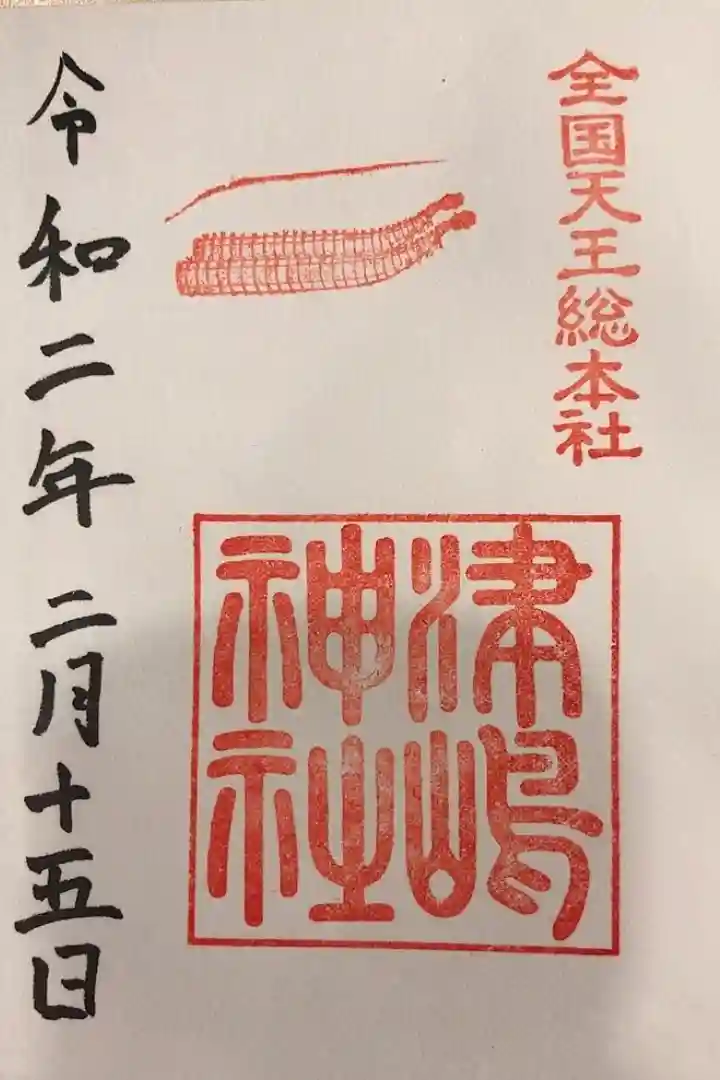 全国天王総本社
津嶋
神社
令和二年 二月十五日